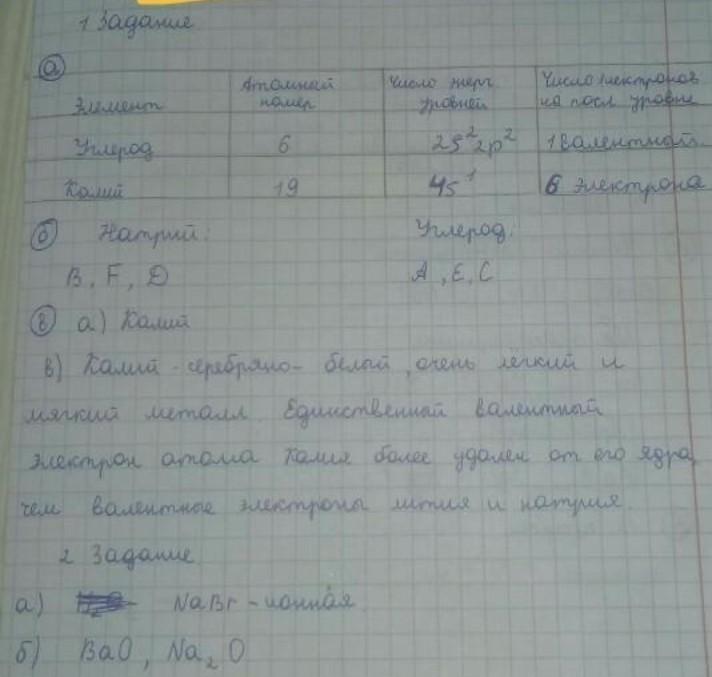 1 Задание
а
Элемент Атомный номер Число энерг. уровней Число электронов на посл уровне
Углерод 6 2s² 2p² 1 валентный
Калий 19 4s¹ 6 электрона
б Натрий: Углерод:
B, F, D A, E, C
в а) Калий
в) Калий - серебряно- белый, очень лёгкий и
мягкий металл. Единственный валентный
электрон атома калия более удален от его ядра,
чем валентные электроны лития и натрия.
2 Задание
а) NaBr - ионная
б) BaO, Na₂O